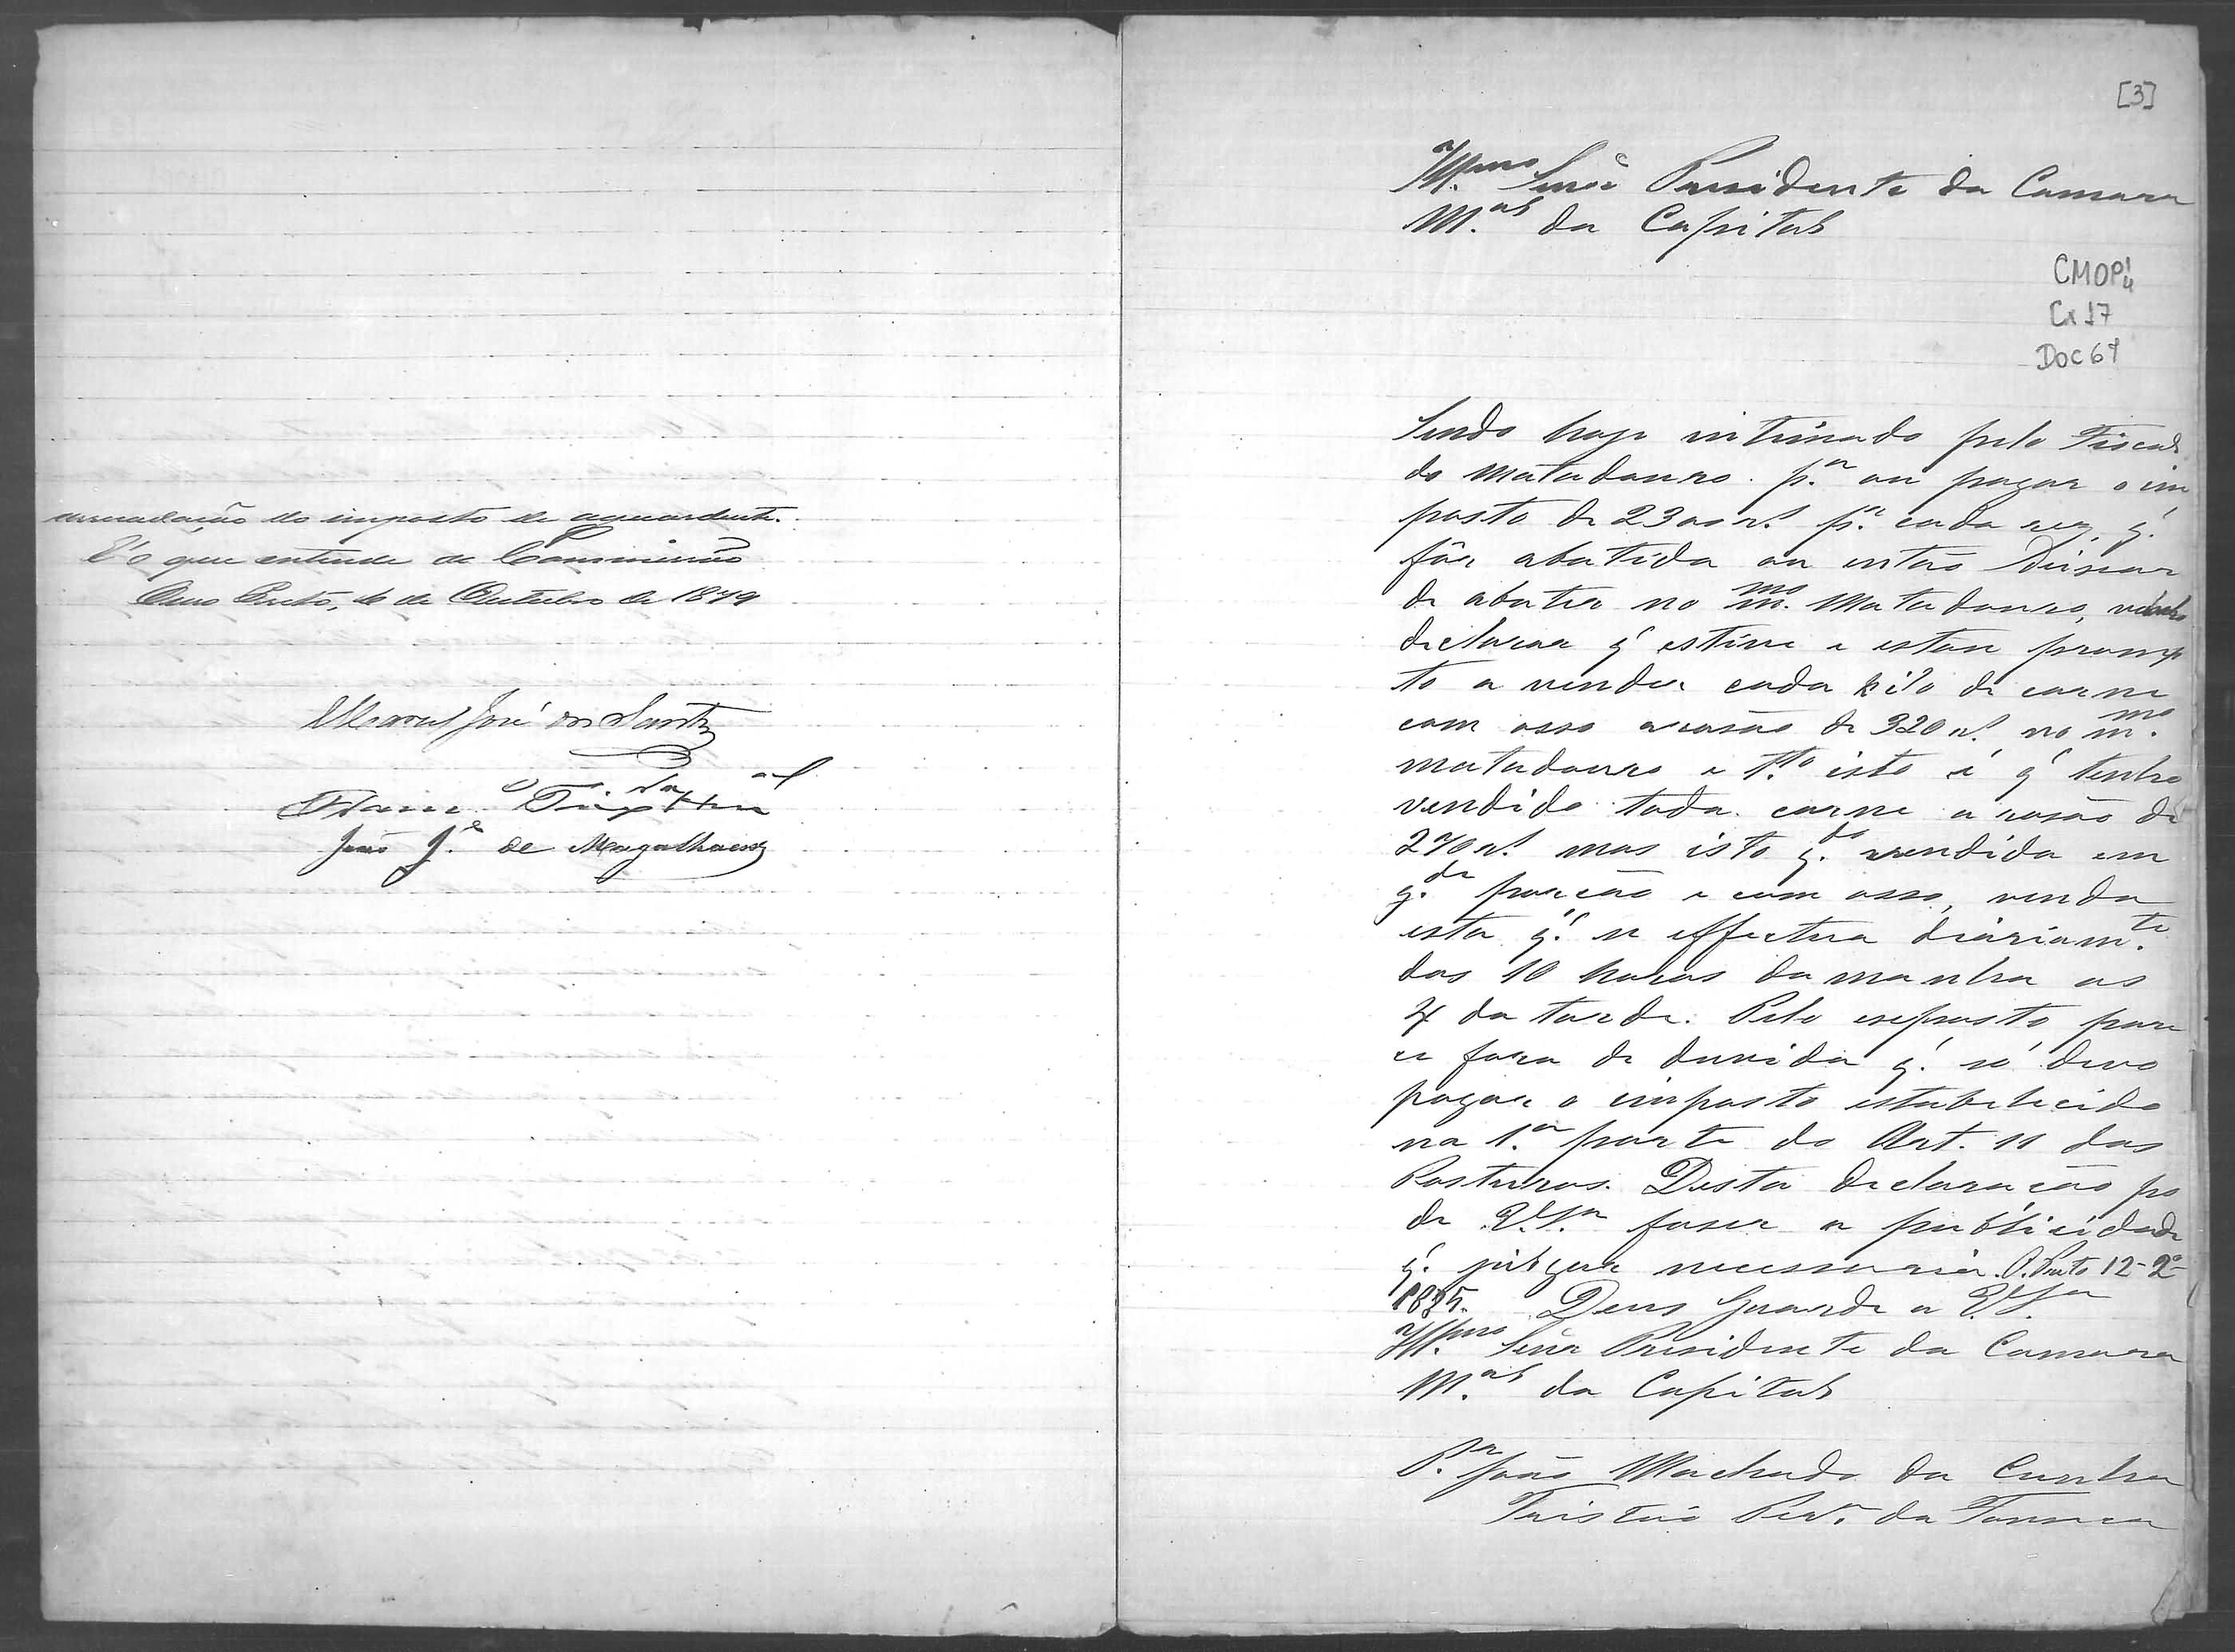 arrecadação do imposto de aguardente.
É o que entende a Commissão
Ouro Preto, de Outubro de 1879
Manoel José dos Santos
Franc.
João J.e de Magalhaens
[3]
Ill.mo Senr Presidente da Camara
M.al da Capital
CMOP
Cx 17
Doc 67
Sendo hoje intimado pelo Fiscal
do Matadouro p.a ou pagar o im
posto de 2300 r.s p.r cada rez q.
fôr abatida ou então deixar
de abater no m.mo Matadouro, venho
declarar q' estive e estou promp
to a vender cada kilo de carne
com osso a rasão de 320 r.s no m.mo
matadouro e t.to isto é q' tenho
vendido toda carne a rasão de
270 r.s mas isto q.do vendida em
g.de porção e com osso, venda
esta q.' se effectua diariam.te
das 10 horas da manha as
4 da tarde. Pelo exposto pare
ce fora de duvida q.' só devo
pagar o imposto estabelecido
na 1.a parte do Art. 11 das
Posturas. Desta declaração po
de V.S.a faser a publicidade
q.' julgar necessaria. O. Preto 12-2-
1885. Deus Guarde a V.S.a
Ill.mo Senr Presidente da Camara
M.al da Capital
P.a João Machado da Cunha
Tristão Per.a da Fonseca